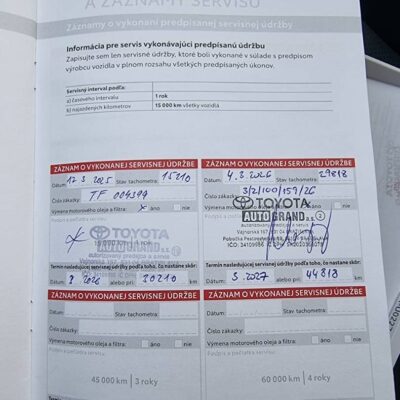 A ZÁZNAMY SERVISU
Záznamy o vykonaní predpísanej servisnej údržby
Informácia pre servis vykonávajúci predpísanú údržbu
Zapisujte sem len údržbu, ktoré boli vykonané v súlade s predpisom
výrobcu vozidla v plnom rozsahu všetkých predpísaných úkonov.
Servisný interval podľa:
a) časového intervalu 1 rok
b) najazdených kilometrov 15 000 km všetky vozidlá
ZÁZNAM O VYKONANEJ SERVISNEJ ÚDRŽBE
Dátum: 12.3.2025 Stav tachometra: 15210
Číslo zákazky: TF
Výmena motorového oleja a filtra: x áno nie
TOYOTA
AUTO GRAND a.s.
15 000 km 1 rok
Termín nasledujúcej servisnej údržby podľa toho, čo nastane skôr:
2026 alebo pri 30210 km
ZÁZNAM O VYKONANEJ SERVISNEJ ÚDRŽBE
Dátum: 4.3.2026 Stav tachometra: 29818
3/2/100/159/26
Číslo zákazky:
TOYOTA
AUTO GRAND a.s. 2
Termín nasledujúcej servisnej údržby podľa toho, čo nastane skôr:
3.2027 alebo pri 44818 km
ZÁZNAM O VYKONANEJ SERVISNEJ ÚDRŽBE
Dátum: Stav tachometra:
Číslo zákazky:
Výmena motorového oleja a filtra: áno nie
Podpis a pečiatka servisu
45 000 km | 3 roky
ZÁZNAM O VYKONANEJ SERVISNEJ ÚDRŽBE
Dátum: Stav tachometra:
Číslo zákazky:
Výmena motorového oleja a filtra: áno nie
Podpis a pečiatka servisu
60 000 km | 4 roky